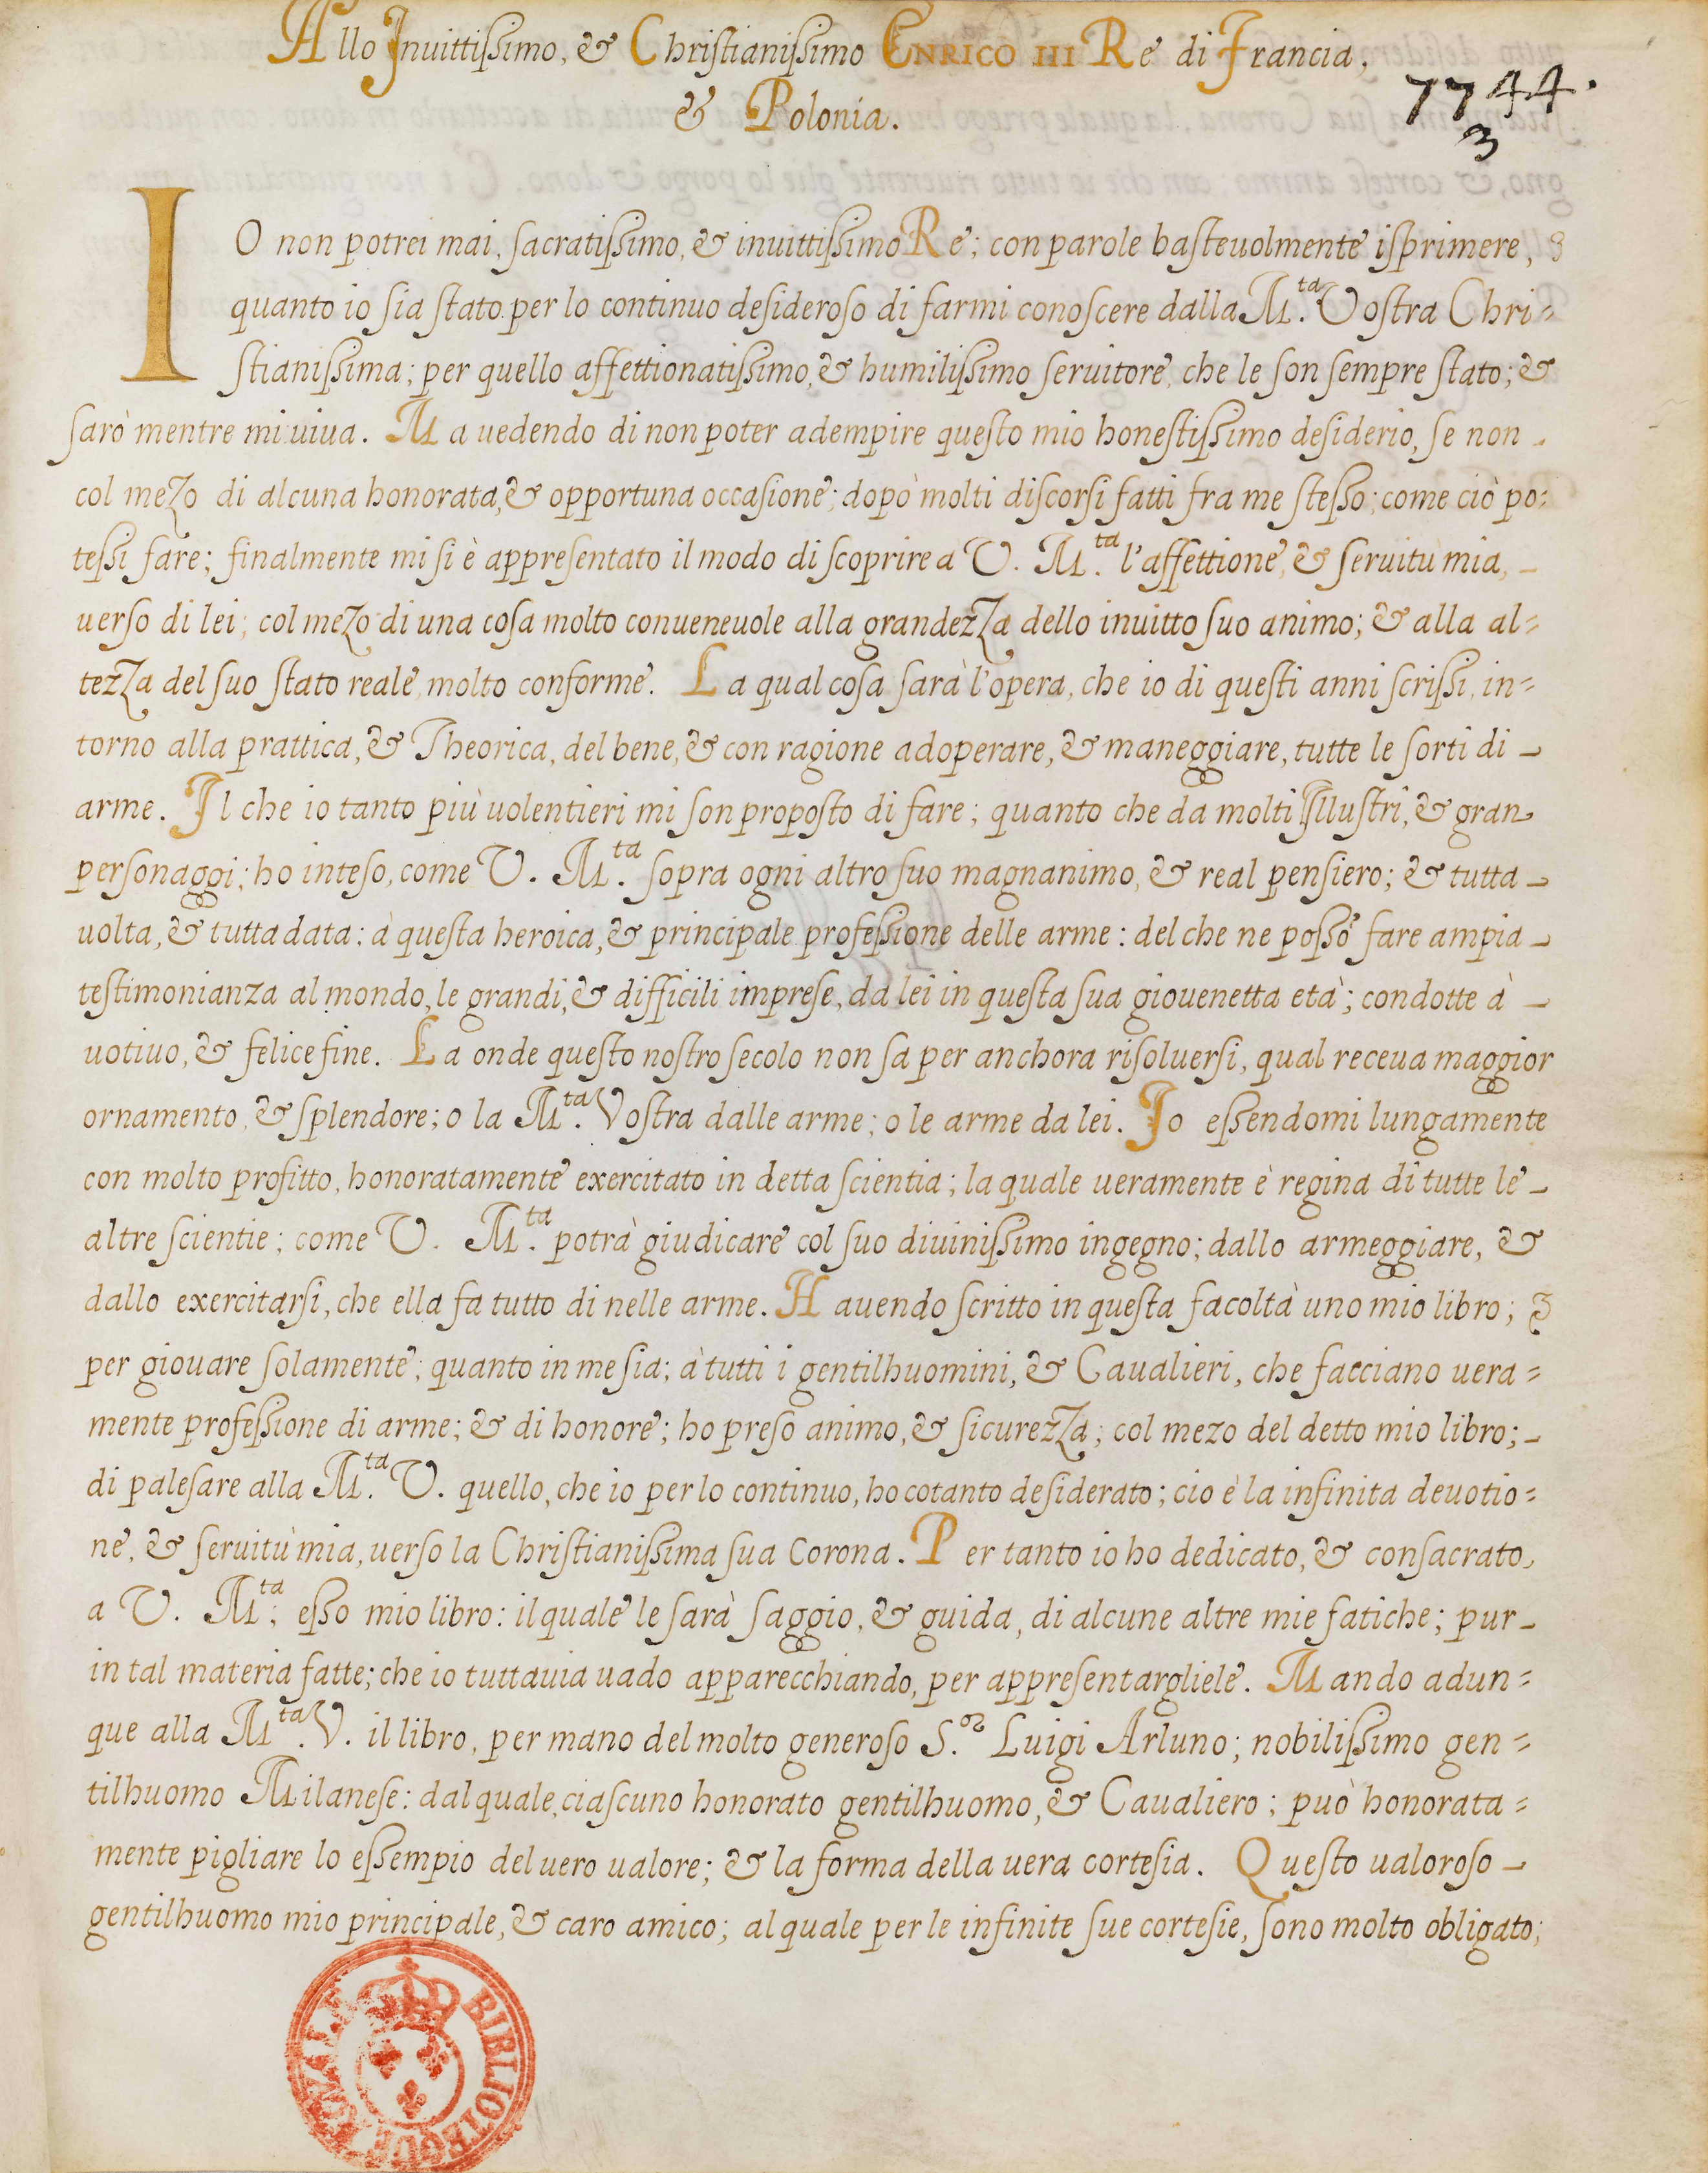 Allo Inuittissimo, & Christianissimo ENRICO III Re di Francia,
& Polonia.
7744.
3
IO non potrei mai, sacratissimo, & inuittissimo Re; con parole basteuolmente isprimere,
quanto io sia stato per lo continuo desideroso di farmi conoscere dalla M.ta Vostra Chri=
stianissima; per quello affettionatissimo, & humilissimo seruitore, che le son sempre stato; &
sarò mentre mi uiua. Ma uedendo di non poter adempire questo mio honestissimo desiderio, se non
col mezo di alcuna honorata, & opportuna occasione; dopò molti discorsi fatti fra me stesso; come ciò po=
tessi fare; finalmente mi si è appresentato il modo di scoprire à V. M.ta l'affettione, & seruitù mia,
uerso di lei; col mezo di una cosa molto conueneuole alla grandezza dello inuitto suo animo; & alla al=
tezza del suo stato reale, molto conforme. La qual cosa sarà l'opera, che io di questi anni scrissi, in=
torno alla prattica, & Theorica, del bene, & con ragione adoperare, & maneggiare, tutte le sorti di
arme. Il che io tanto più uolentieri mi son proposto di fare; quanto che da molti Illustri, & gran
personaggi; ho inteso, come V. M.ta sopra ogni altro suo magnanimo, & real pensiero; & tutta
uolta, & tutta data; à questa heroica, & principale professione delle arme: del che ne posso fare ampia
testimonianza al mondo, le grandi, & difficili imprese, da lei in questa sua giouenetta età; condotte à
uotiuo, & felice fine. La onde questo nostro secolo non sa per anchora risoluersi, qual receua maggior
ornamento, & splendore; o la M.ta Vostra dalle arme; o le arme da lei. Io essendomi lungamente
con molto profitto, honoratamente exercitato in detta scientia; la quale ueramente è regina di tutte le
altre scientie; come V. M.ta potrà giudicare col suo diuinissimo ingegno; dallo armeggiare, &
dallo exercitarsi, che ella fa tutto di nelle arme. Hauendo scritto in questa facoltà uno mio libro; &
per giouare solamente; quanto in me sia; à tutti i gentilhuomini, & Caualieri, che facciano uera=
mente professione di arme; & di honore; ho preso animo, & sicurezza; col mezo del detto mio libro;
di palesare alla M.ta V. quello, che io per lo continuo, ho cotanto desiderato; cio è la infinita deuotio=
ne, & seruitù mia, uerso la Christianissima sua Corona. Per tanto io ho dedicato, & consacrato
a V. M.ta; esso mio libro: il quale le sarà saggio, & guida, di alcune altre mie fatiche; pur
in tal materia fatte; che io tuttauia uado apparecchiando, per appresentargliele. Mando adun=
que alla M.ta V. il libro, per mano del molto generoso S.or Luigi Arluno; nobilissimo gen=
tilhuomo Milanese: dal quale, ciascuno honorato gentilhuomo, & Caualiero; può honorata=
mente pigliare lo essempio del uero ualore; & la forma della uera cortesia. Questo ualoroso
gentilhuomo mio principale, & caro amico; al quale per le infinite sue cortesie, sono molto obligato;
BIBLIOTEQUE ROYALE